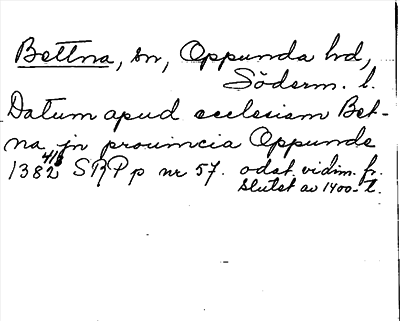 Bettna, sn, Oppunda hd,
Söderm. l.
Datum apud ecclesiam Bet-
na jn prouincia Oppunde
1382 4/3 SRPp nr 57. odat. vidim. fr.
slutet av 1400-t.